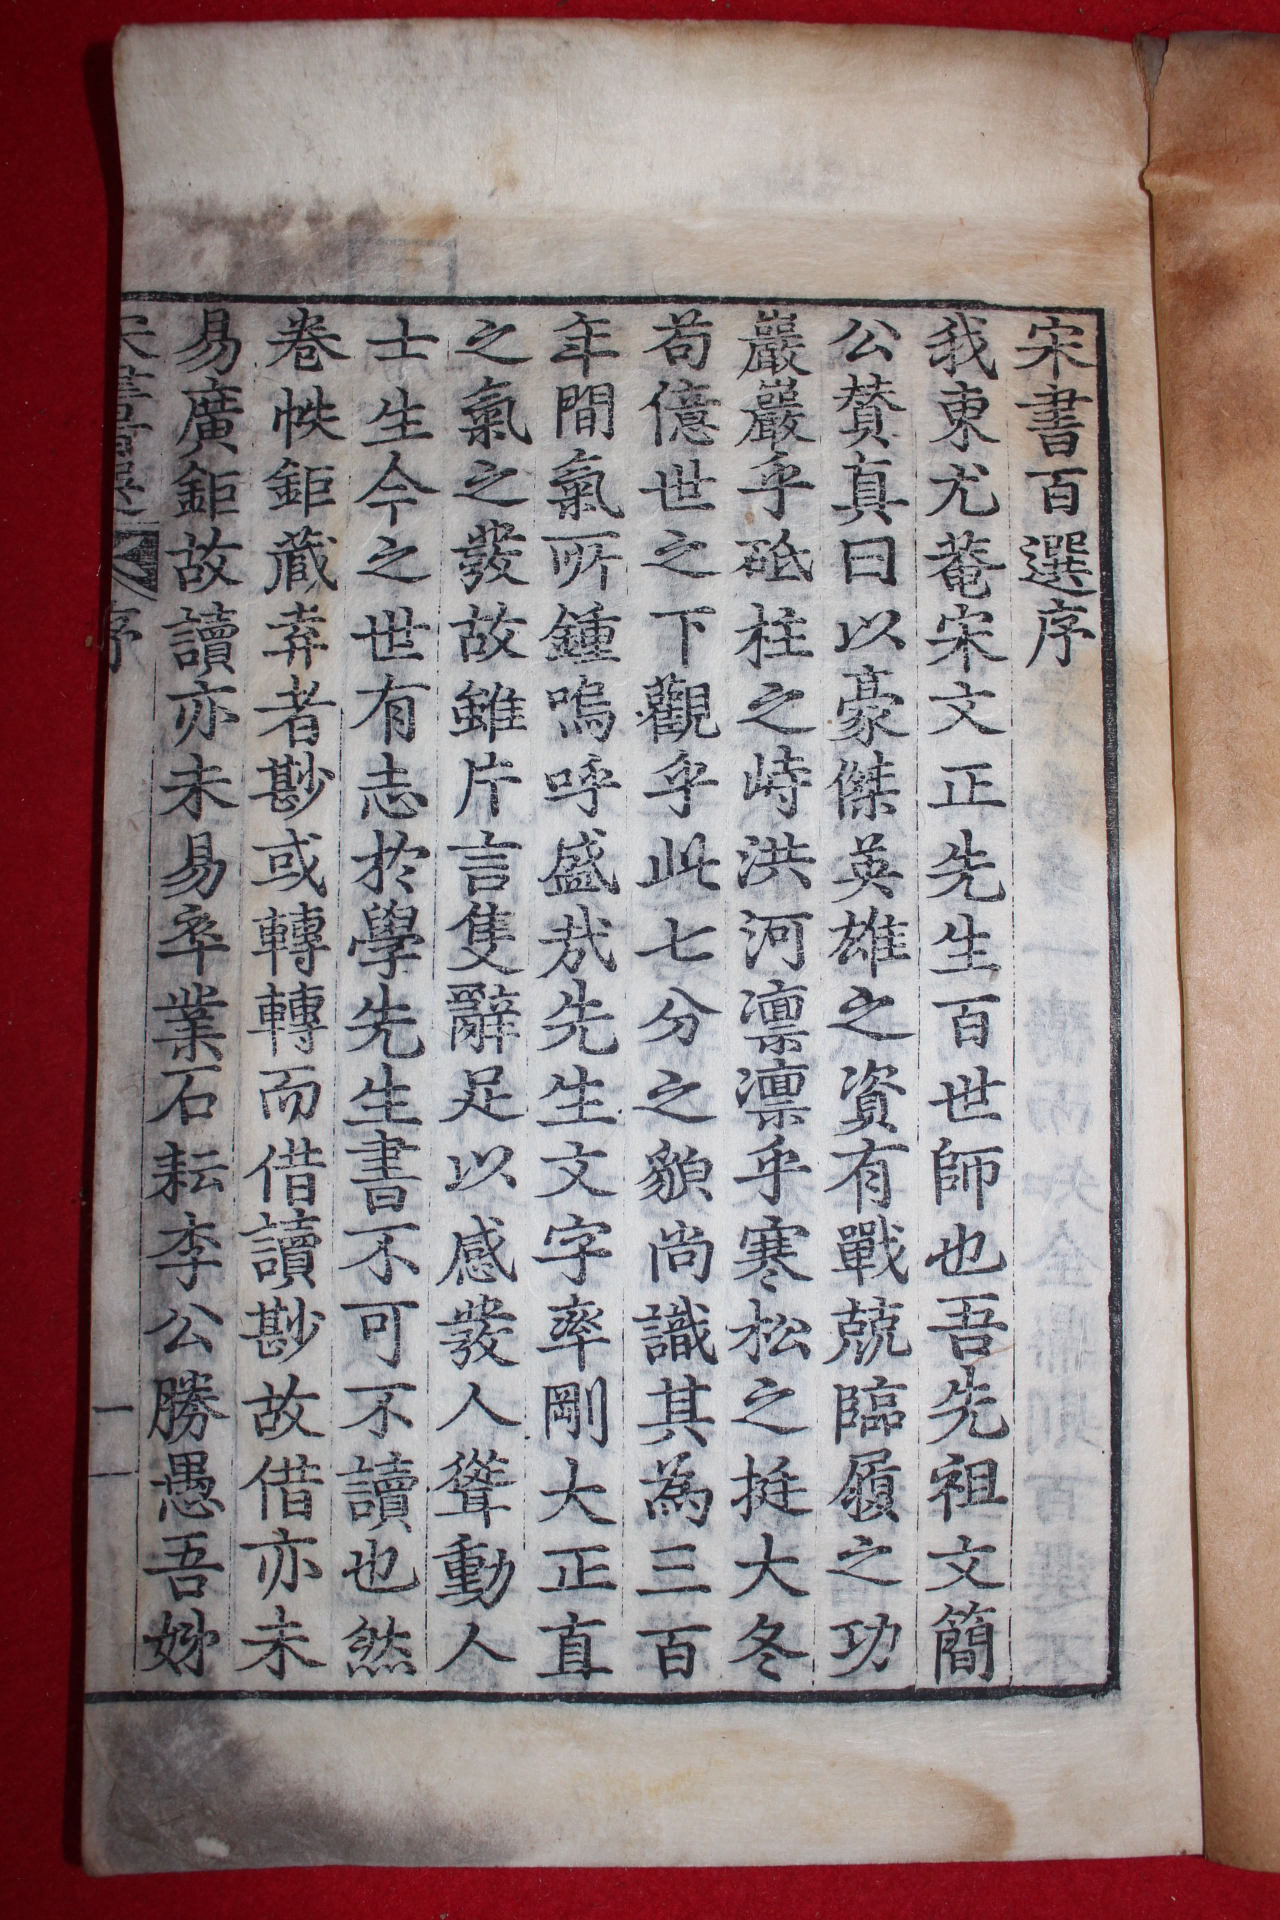 宋書百選序
我東尤菴宋文正先生百世師也吾先祖文簡
公贊真曰以豪傑英雄之資有戰兢臨履之功
巖巖乎砥柱之峙洪河凛凛乎寒松之挺大冬
苟億世之下觀乎此七分之貌尚識其為三百
年間氣所鍾嗚呼盛哉先生文字率剛大正直
之氣之發故雖片言隻辭足以感發人聳動人
士生今之世有志於學先生書不可不讀也然
卷帙鉅藏弆者尠或轉轉而借讀尠故借亦未
易廣鉅故讀亦未易卒業石耘李公勝愚吾妙
宋書百選 序 一